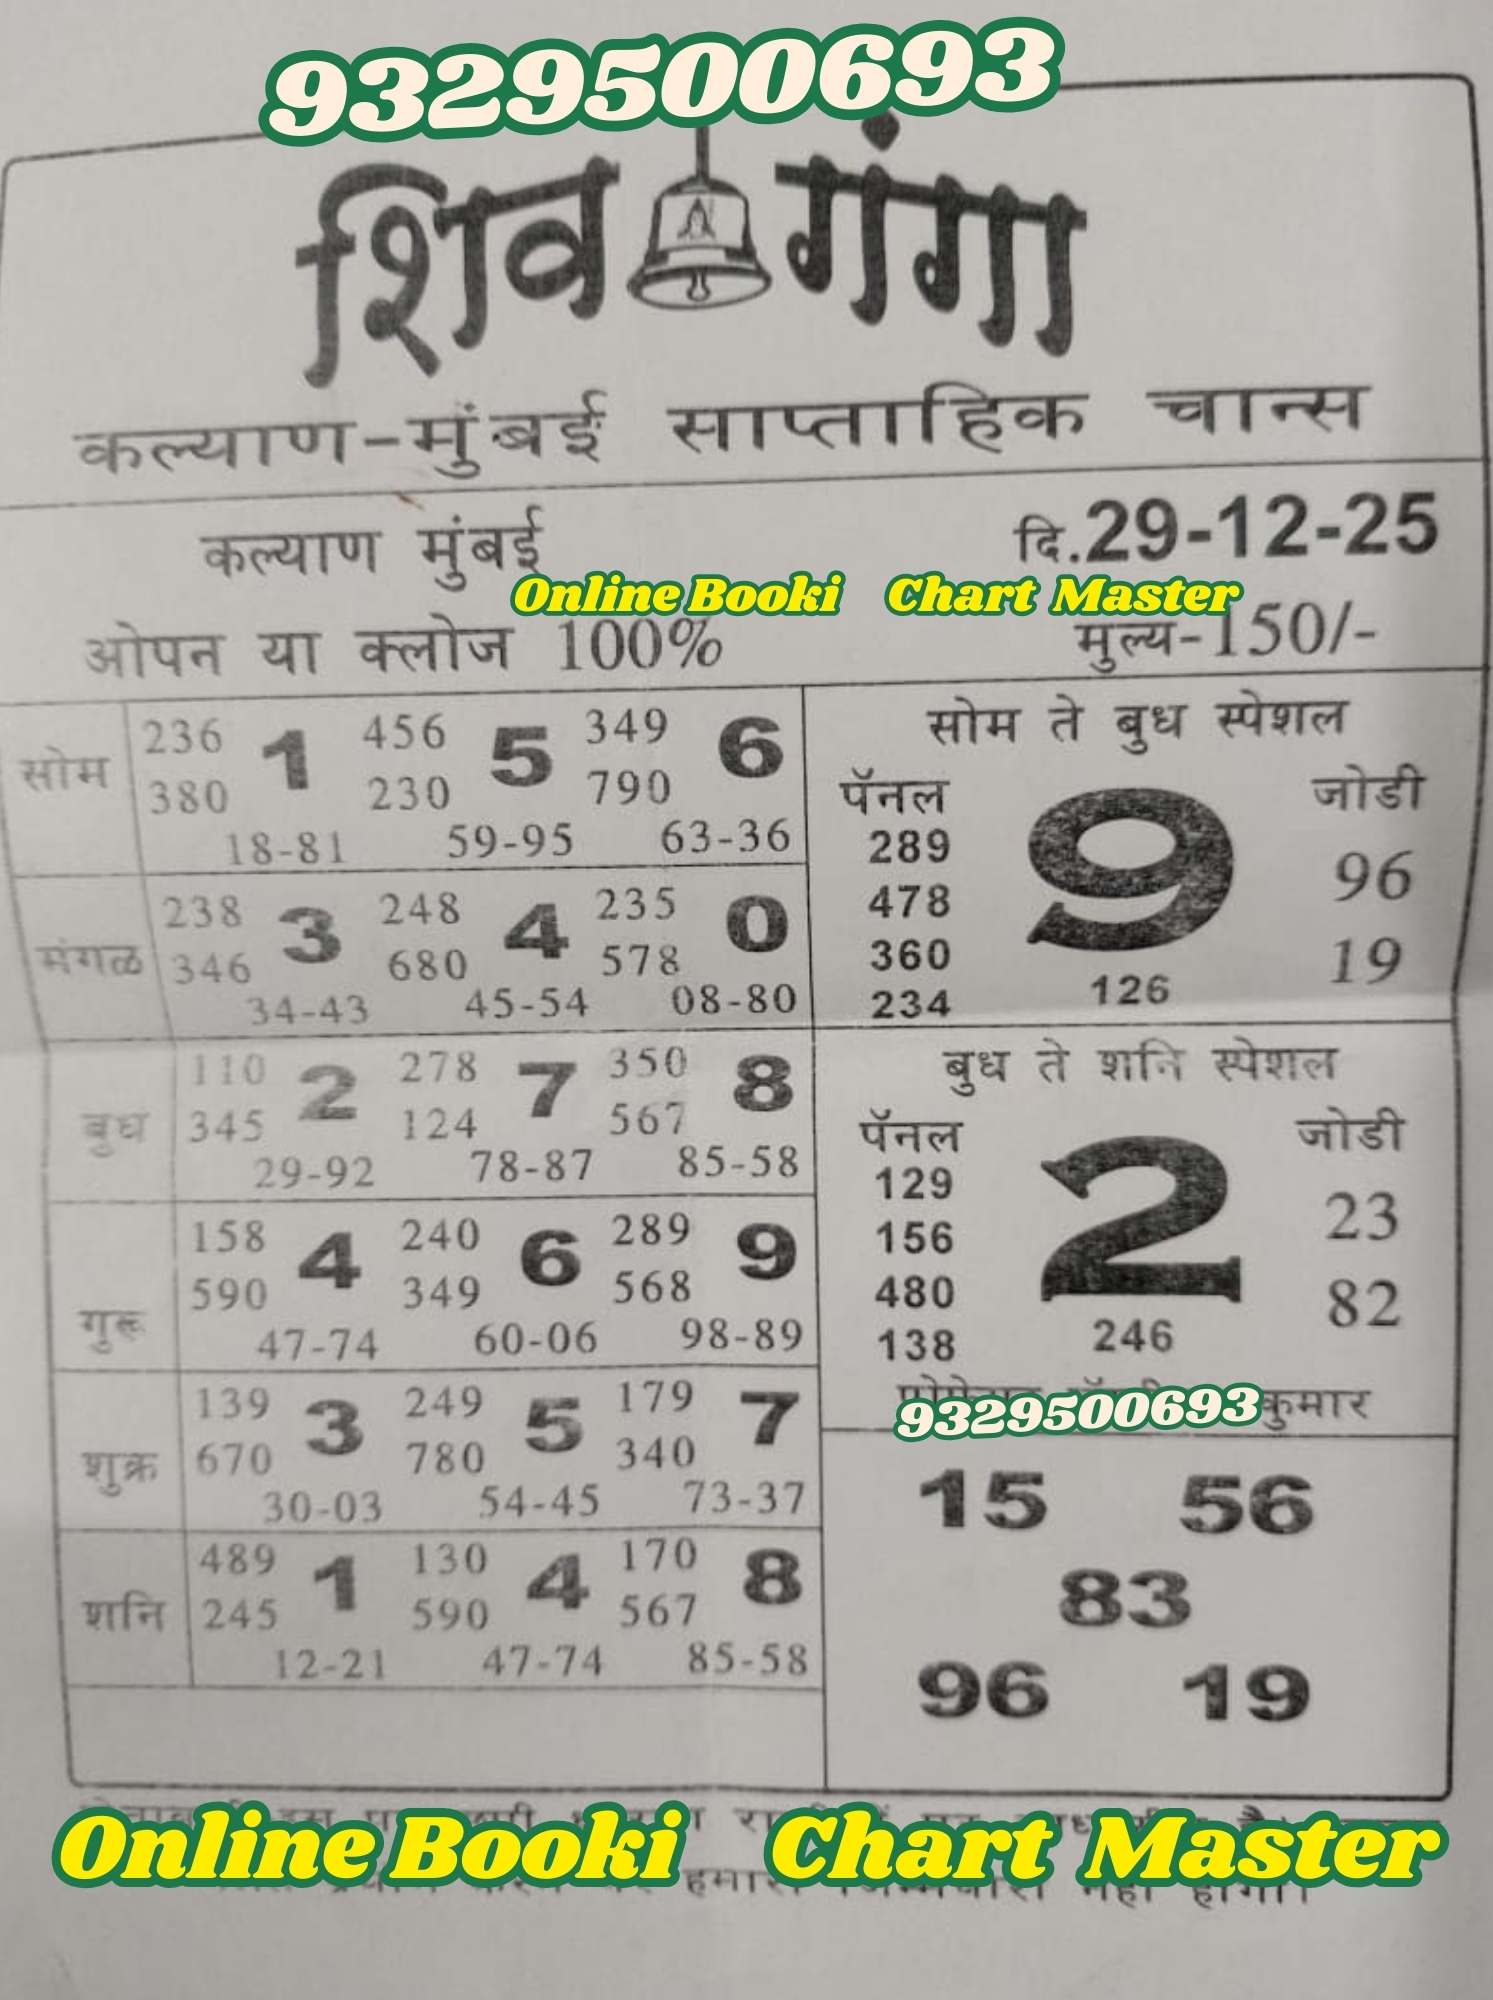 9329500693
शिव गंगा
कल्याण-मुंबई साप्ताहिक चान्स
कल्याण मुंबई दि.29-12-25
Online Booki Chart Master
ओपन या क्लोज 100% मुल्य-150/-
सोम
236 1 456 5 349 6
380 230 790
18-81 59-95 63-36
मंगळ
238 3 248 4 235 0
346 680 578
34-43 45-54 08-80
बुध
110 2 278 7 350 8
345 124 567
29-92 78-87 85-58
गुरू
158 4 240 6 289 9
590 349 568
47-74 60-06 98-89
शुक्र
139 3 249 5 179 7
670 780 340
30-03 54-45 73-37
शनि
489 1 130 4 170 8
245 590 567
12-21 47-74 85-58
सोम ते बुध स्पेशल
पॅनल 9 जोडी
289 96
478
360 19
234 126
बुध ते शनि स्पेशल
पॅनल 2 जोडी
129
156 23
480 82
138 246
9329500693 कुमार
15 56
83
96 19
Online Booki Chart Master